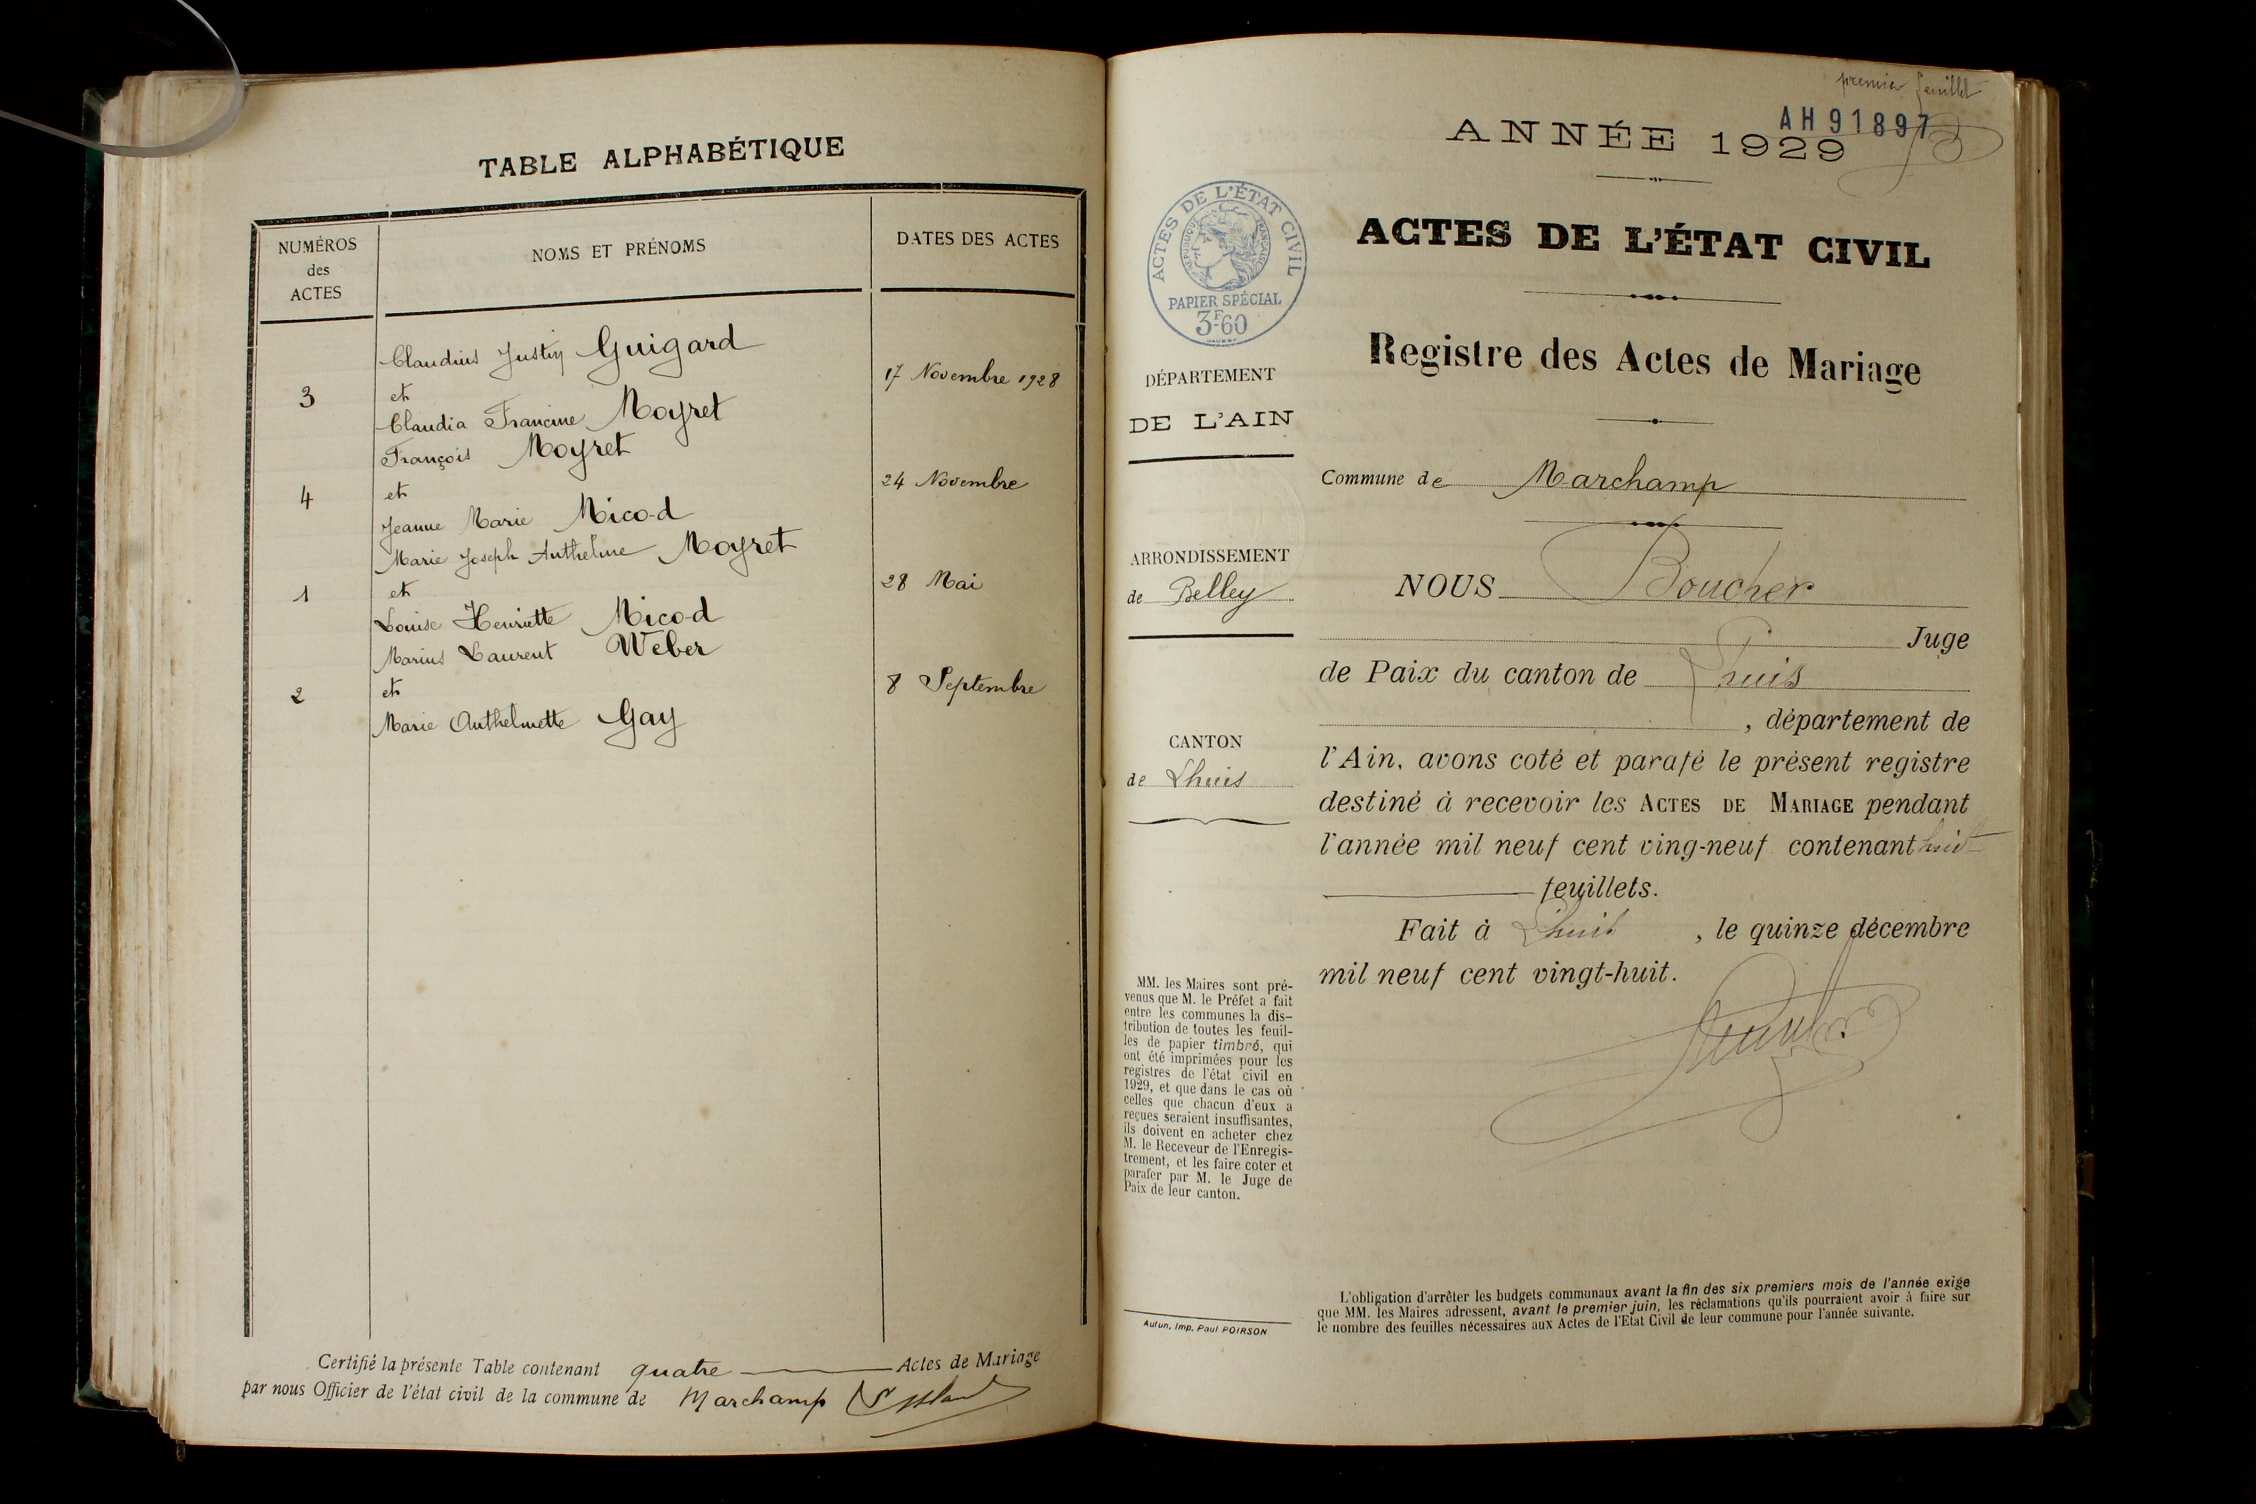 TABLE ALPHABÉTIQUE
NUMÉROS
des
ACTES
NOMS ET PRÉNOMS
DATES DES ACTES
Claudius Justin Guigard
3 et 17 Novembre 1928
Claudia Francine Moyret
François Moyret
4 et 24 Novembre
Jeanne Marie Micod
Marie Joseph Anthelme Moyret
1 et 28 Mai
Louise Henriette Micod
Marius Laurent Weber
2 et 8 Septembre
Marie Anthelmette Gay
Certifié la présente Table contenant quatre Actes de Mariage
par nous Officier de l'état civil de la commune de Marchamp
premier feuillet
AH 91897
ANNÉE 1929
ACTES DE L'ÉTAT CIVIL
RÉPUBLIQUE FRANÇAISE
PAPIER SPÉCIAL
3F60
ACTES DE L'ÉTAT CIVIL
Registre des Actes de Mariage
DÉPARTEMENT
DE L'AIN
Commune de Marchamp
ARRONDISSEMENT
de Belley
CANTON
de Lhuis
NOUS Boucher
Juge
de Paix du canton de Lhuis
, département de
l'Ain, avons coté et parafé le présent registre
destiné à recevoir les ACTES DE MARIAGE pendant
l'année mil neuf cent ving-neuf contenant huit
feuillets.
Fait à Lhuis, le quinze décembre
mil neuf cent vingt-huit.
MM. les Maires sont pré-
venus que M. le Préfet a fait
entre les communes la dis-
tribution de toutes les feuil-
les de papier timbré, qui
ont été imprimées pour les
registres de l'état civil en
1929, et que dans le cas où
celles que chacun d'eux a
reçues seraient insuffisantes,
ils doivent en acheter chez
M. le Receveur de l'Enregis-
trement, et les faire coter et
parafer par M. le Juge de
Paix de leur canton.
Autun, Imp. Paul POIRSON
L'obligation d'arrêter les budgets communaux avant la fin des six premiers mois de l'année exige
que MM. les Maires adressent, avant le premier juin, les réclamations qu'ils pourraient avoir à faire sur
le nombre des feuilles nécessaires aux Actes de l'Etat Civil de leur commune pour l'année suivante.